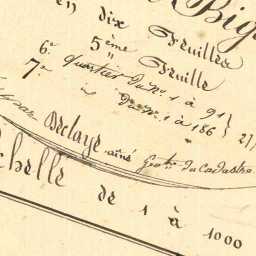 Big
en dix Feuilles
5ème Feuille
6e Quartier du No. 1 à 91
7e du No. 1 à 186
Declaye ainé Géotre. du Cadastre
Echelle de 1 à 1000